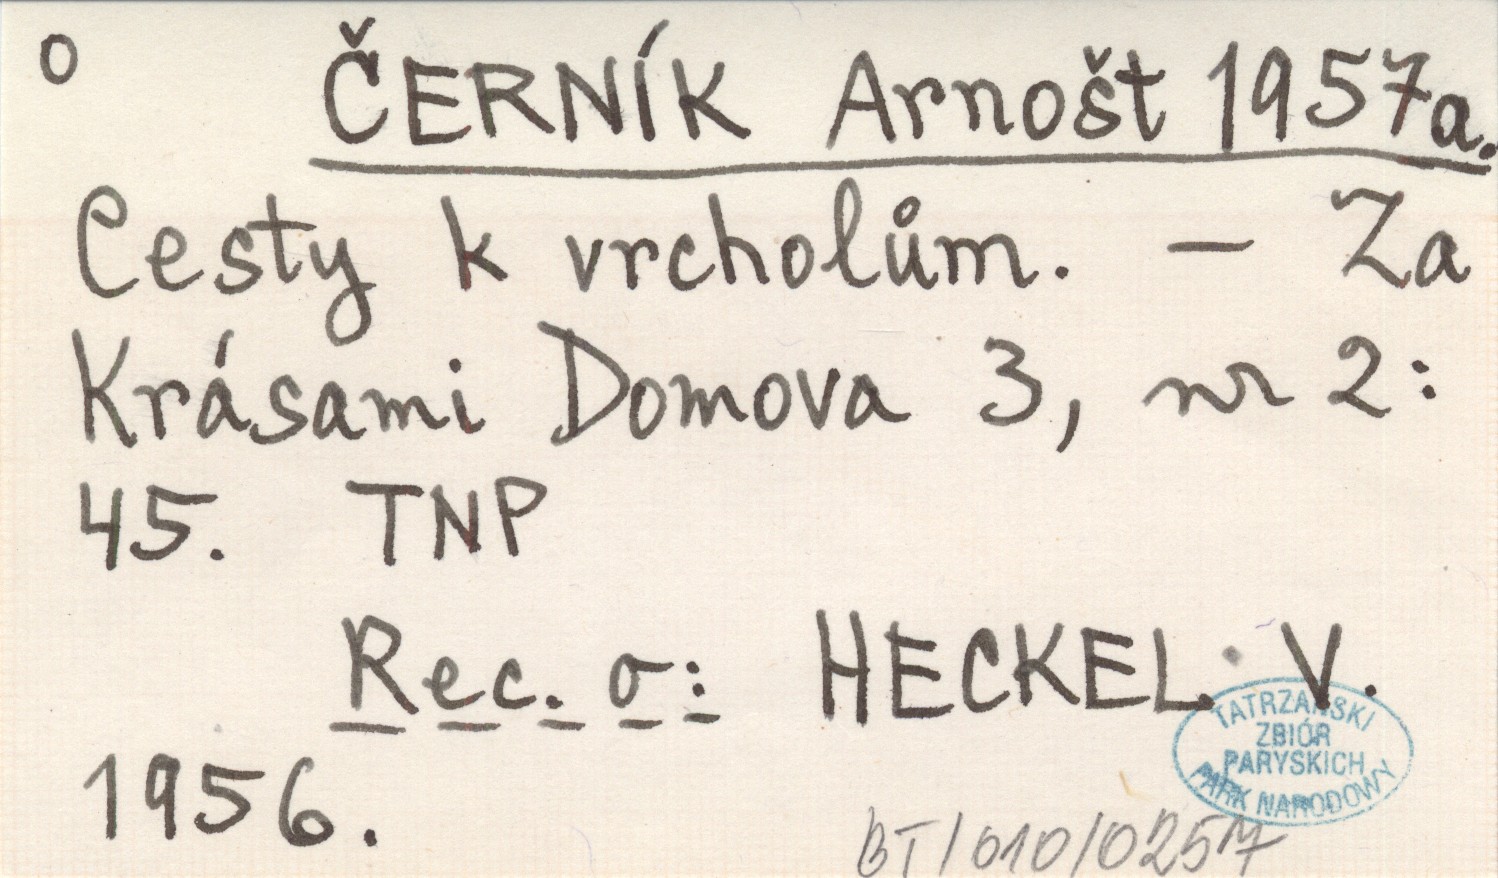 o ČERNÍK Arnošt 1957a.
Cesty k vrcholům. — Za
Krásami Domova 3, nr 2:
45. TNP
Rec. o: HECKEL. V.
1956.
TATRZAŃSKI
ZBIÓR
PARYSKICH
PARK NARODOWY
BT/010/0257